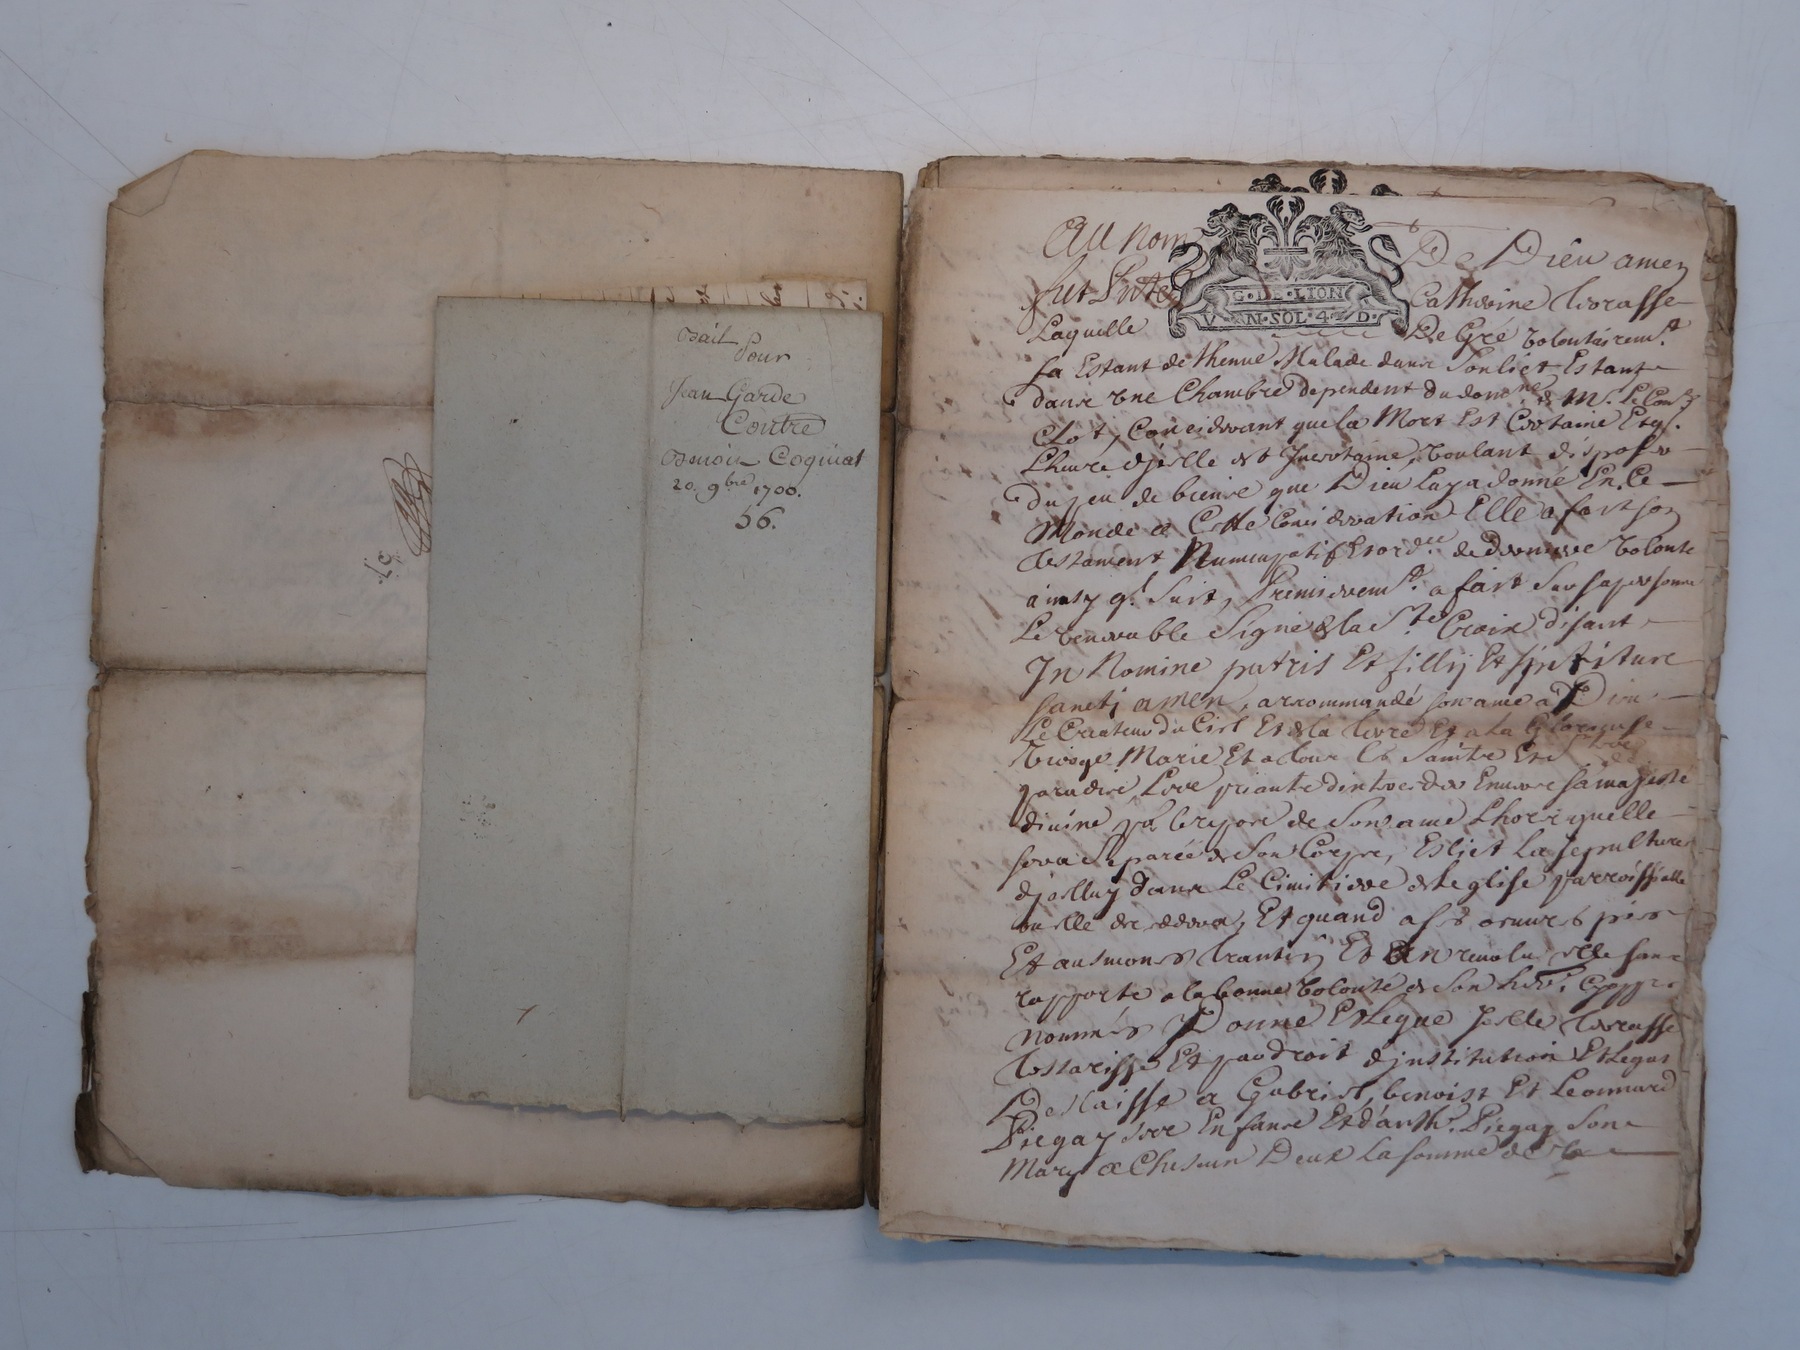 Bail
Pour
Jean Garde
Contre
Benoit Coquiat
20. 9bre 1700.
56.
Au nom De Dieu amen
fut Catherine Terrasse
G·DE·LION
V N·SOL·4 D·
Laquelle De Gré volontairemt
Estant dethenue Malade dans son lict Estant
dans une Chambre dependent du
Considerant que la Mort Est Certaine Et q.
Lheure d'jcelle est Incertaine, voulant disposer
du peu de biens que Dieu luy a donné En Ce
Monde a Cette Consideration Elle a fait son
testament Nuncupatif Et ordce de derniere volonté
ainsy q. suit, Premieremt a fait sur sa personne
Le venerable Signe de la Ste Croix disant
In Nomine patris Et fillij Et spiritus
sancti amen, a recommandé son ame a Dieu
Le Createur du Ciel Et de la terre Et a la Glorieuse
Vierge Marie Et a tous les Saints Et
paradis, priants d'interceder Envers sa majesté
divine pr le repos de son ame Lhors quelle
sera Separée de son Corps, Eslict la sepulture
d'jcelluy dans Le Cimitiere de leglise parroissialle
Et quand a ses œuvres pies
Et ausmones Elle sen
rapporte a la bonne volonté de son
nommés Donne Et Legue Terrasse
testatrisse Et par droit d'jnstitution Et Legat
Delaisse a Gabriel, benoist Et Leonnard
Piegay ses Enfans Et d'anth. Piegay son
Mary a Chascun Deux La somme de